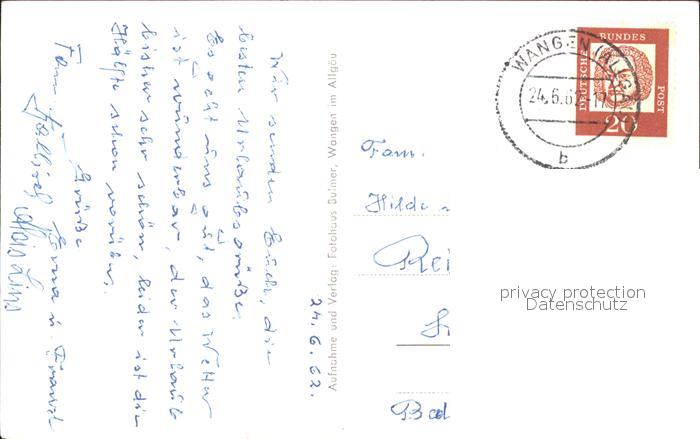 24.6.62.
Wir senden Euch, die
besten Urlaubsgrüße.
Es geht uns gut, das Wetter
ist wunderbar, der Urlaub
bisher sehr schön, leider ist die
Hälfte schon vorüber.
Grüße
Fam.
Erna u. Franzl
Alois
Aufnahme und Verlag: Fotohaus Dulmer, Wangen im Allgäu
WANGEN (ALLGÄU)
24.6.62-17
b
DEUTSCHE
BUNDES
POST
20
Fam.
Hilde
Rei
Bad
privacy protection
Datenschutz